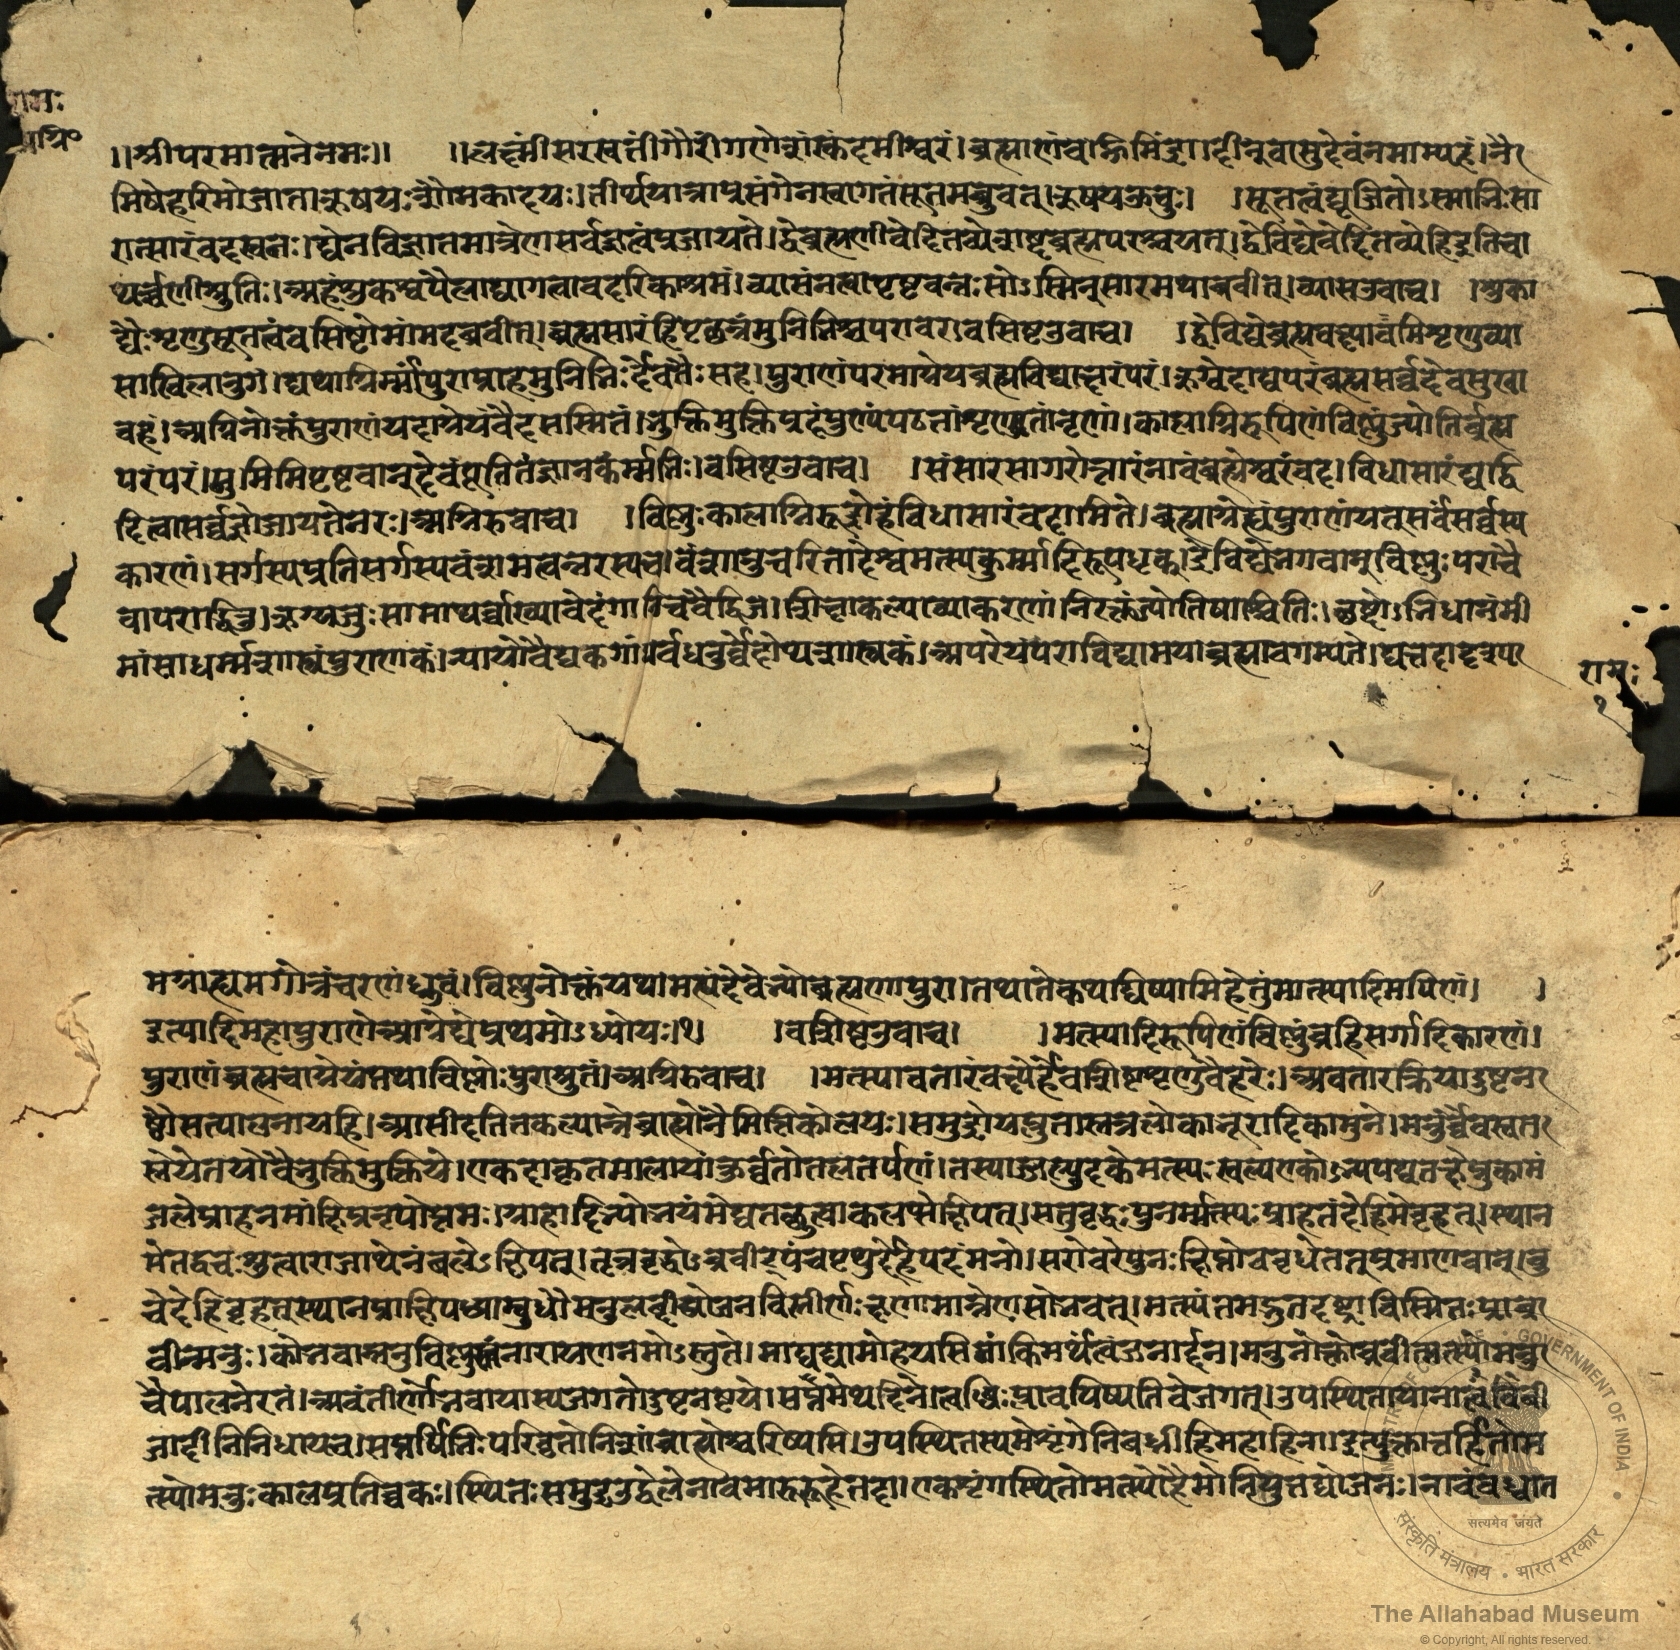 रामः
अग्नि॰
॥श्रीपरमात्मनेनमः॥ ॥लक्ष्मींसरस्वतींगौरींगणेशंस्कंदमीश्वरं।ब्रह्माणंवाह्निमिंद्रादीन्वासुदेवंनमाम्यहं।नै
मिषेहरिमीजानाऋषयःशौनकादयः।तीर्थयात्राप्रसंगेनस्वागतंसूतमब्रुवत्।ऋषयऊचुः। ।सूतत्वंपूजितोऽस्माभिःसा
रात्सारंवदस्वनः।येनविज्ञातमात्रेणसर्वज्ञत्वंप्रजायते।द्वेब्रह्मणीवेदितव्येशब्दब्रह्मपरश्चयत्।द्वेविद्येवेदितव्येहिइतिचा
थर्वणीश्रुतिः।अहंशुकश्चपैलाद्यागत्वाबदरिकाश्रमं।व्यासंनत्वापृष्टवन्तःसोऽस्मिन्सारमथाब्रवीत्।व्यासउवाच। ।शुका
द्यैःशृणुसूतत्वंवसिष्टोमांमदब्रवीत्।ब्रह्मसारंहिपृछन्तंमुनिभिश्चपरावरं।वसिष्टउवाच। ।द्वेविद्येब्रह्मवक्ष्यावमिशृणुव्या
साखिलानुगं।यथाग्निर्मांपुराप्राहमुनिभिर्दैवतैःसह।पुराणंपरमाग्नेयंब्रह्मविद्याक्षरंपरं।ऋग्वेदाद्यपरंब्रह्मसर्वदेवसुखा
वहं।अग्निनोक्तंपुराणंयदाग्नेयंवैदसस्मितं।भुक्तिमुक्तिप्रदंपुण्यंपठतांशृण्वतांनृणां।कालाग्निरूपिणंविष्णुंज्योतिर्ब्रह्म
परंपरं।मुनिभिपृष्टवान्देवंपूजितंज्ञानकर्म्मभिः।वसिष्टउवाच। ।संसारसागरोत्तारंनावंब्रह्मेश्वरंवद।विद्यासारंयद्वि
दित्वासर्वज्ञोजायतेनरः।अग्निरुवाच। ।विष्णुःकालाग्निरूद्रोहंविद्यासारंवदामिते।ब्रह्माग्नेयंपुराणंयत्सर्वंसर्वस्य
कारणं।सर्गस्यप्रतिसर्गस्यवंशमन्वन्तरस्यच।वंशानुचरितादेश्चमत्स्यकुर्म्मादिरूपधृक्।द्वेविद्येभगवान्विष्णुःपराचै
वापराद्विज।ऋग्यजुःसामाथर्वाख्यावेदंगानिचवैद्विज।शिक्षाकल्पव्याकरणं।निरुक्तंज्योतिषाङ्गतिः।छंदोऽभिधानंमी
मांसाधर्म्मशास्त्रंपुराणकं।न्यायोवैद्यकगांधर्वंधनुर्वेदोप्यर्थशास्त्रकं।अपरेयंपराविद्यामयाब्रह्मावगम्यते।यत्तददृश्यपा
रामः
१
मग्राह्यमगोत्रंचरणंध्रुवं।विष्णुनोक्तंयथामत्यंदेवेभ्योब्रह्मणापुरा।तथातेकथयिष्यामिहेतुंमात्स्यादिमपिणं। ।
इत्यादिमहापुराणेआग्नेयेप्रथमोऽध्यायः।१। ।वशिष्टउवाच। ।मत्स्यादिरूपिणंविष्णुंब्रूहिसर्गादिकारणं।
पुराणंब्रह्मचाग्नेयंयथाविष्णोःपुराश्रुतं।अग्निरुवाच। ।मत्स्यावतारंवक्ष्येहंवशिष्टशृणुवैहरेः।अवतारक्रियादुष्टन
ष्ट्यैसत्पालनायहि।आसीदतितकल्पान्तेब्राह्मोनैमित्तिकोलयः।समुद्रोपप्लुतास्तत्रलोकाभूरादिकामुने।मनुर्वैवस्वत
स्तेपेतपोवैभुक्तिमुक्तिये।एकदाकृतमालायांकुर्वतोतलतर्पणं।तस्याञ्जल्युदकेमत्स्यःस्वल्पएकोऽभ्यपद्यतक्षेप्तुकामं
जलेप्राहनमांक्षिपनृपोत्तमः।ग्राहादिभ्योभयंमेद्यतच्छ्रुत्वाकलशेक्षिपत्।सतुवृद्धःपुनर्म्मत्स्यःप्राहतंदेहिमेवृहत्।स्थान
मेतद्वचःश्रुत्वाराजाथेनंबलेऽक्षिपत्।तत्रवृद्धोऽब्रवीद्भूपंचपृथुदेहिपदंमनो।सरोवरेपुनःक्षिप्तोववृधेतत्प्रमाणवान्।वु
चेदेहिवृहत्स्थानंप्राक्षिपच्चाम्बुधौमनुःलक्षयोजनविस्तीर्णःक्षणमात्रेणसोभवत्।मत्स्यंतमद्भुतदृष्ट्वाविस्मितःप्राब्र
वीन्मनुः।कोभवान्ननुविष्णुस्त्वंनारायणनमोऽस्तुते।मायद्यामोहयसिमांकिमर्थंत्वंजनार्दन।मनुनोक्तोब्रवीन्मत्स्योमनुं
वैपालनेरतं।अवतीर्णोभवायास्यजगतोदुष्टनष्टये।सप्तमेथदिने।लब्धिःप्लावयिष्यतिवेजगत्।उपस्थितायानात्वंविबी
जादीनिनिधायच।सप्तर्षिभिःपरिवृतोनिशांब्राह्मोश्चरिष्यसि।उपस्थितस्यमेशृंगेनिबध्नीहिमहाहिना।इत्युक्त्वान्तर्हितोम
त्स्योमनुःकालप्रतिक्षकः।स्थितःसमुद्रउद्वेलेनावमारूरूहेतदा।एकशृंगस्थितोमत्स्योहैमोनियुतयोजनः।नावंबध्वात
MINISTRY OF CULTURE • GOVERNMENT OF INDIA
सत्यमेव जयते
संस्कृति मंत्रालय • भारत सरकार
The Allahabad Museum
© Copyright, All rights reserved.